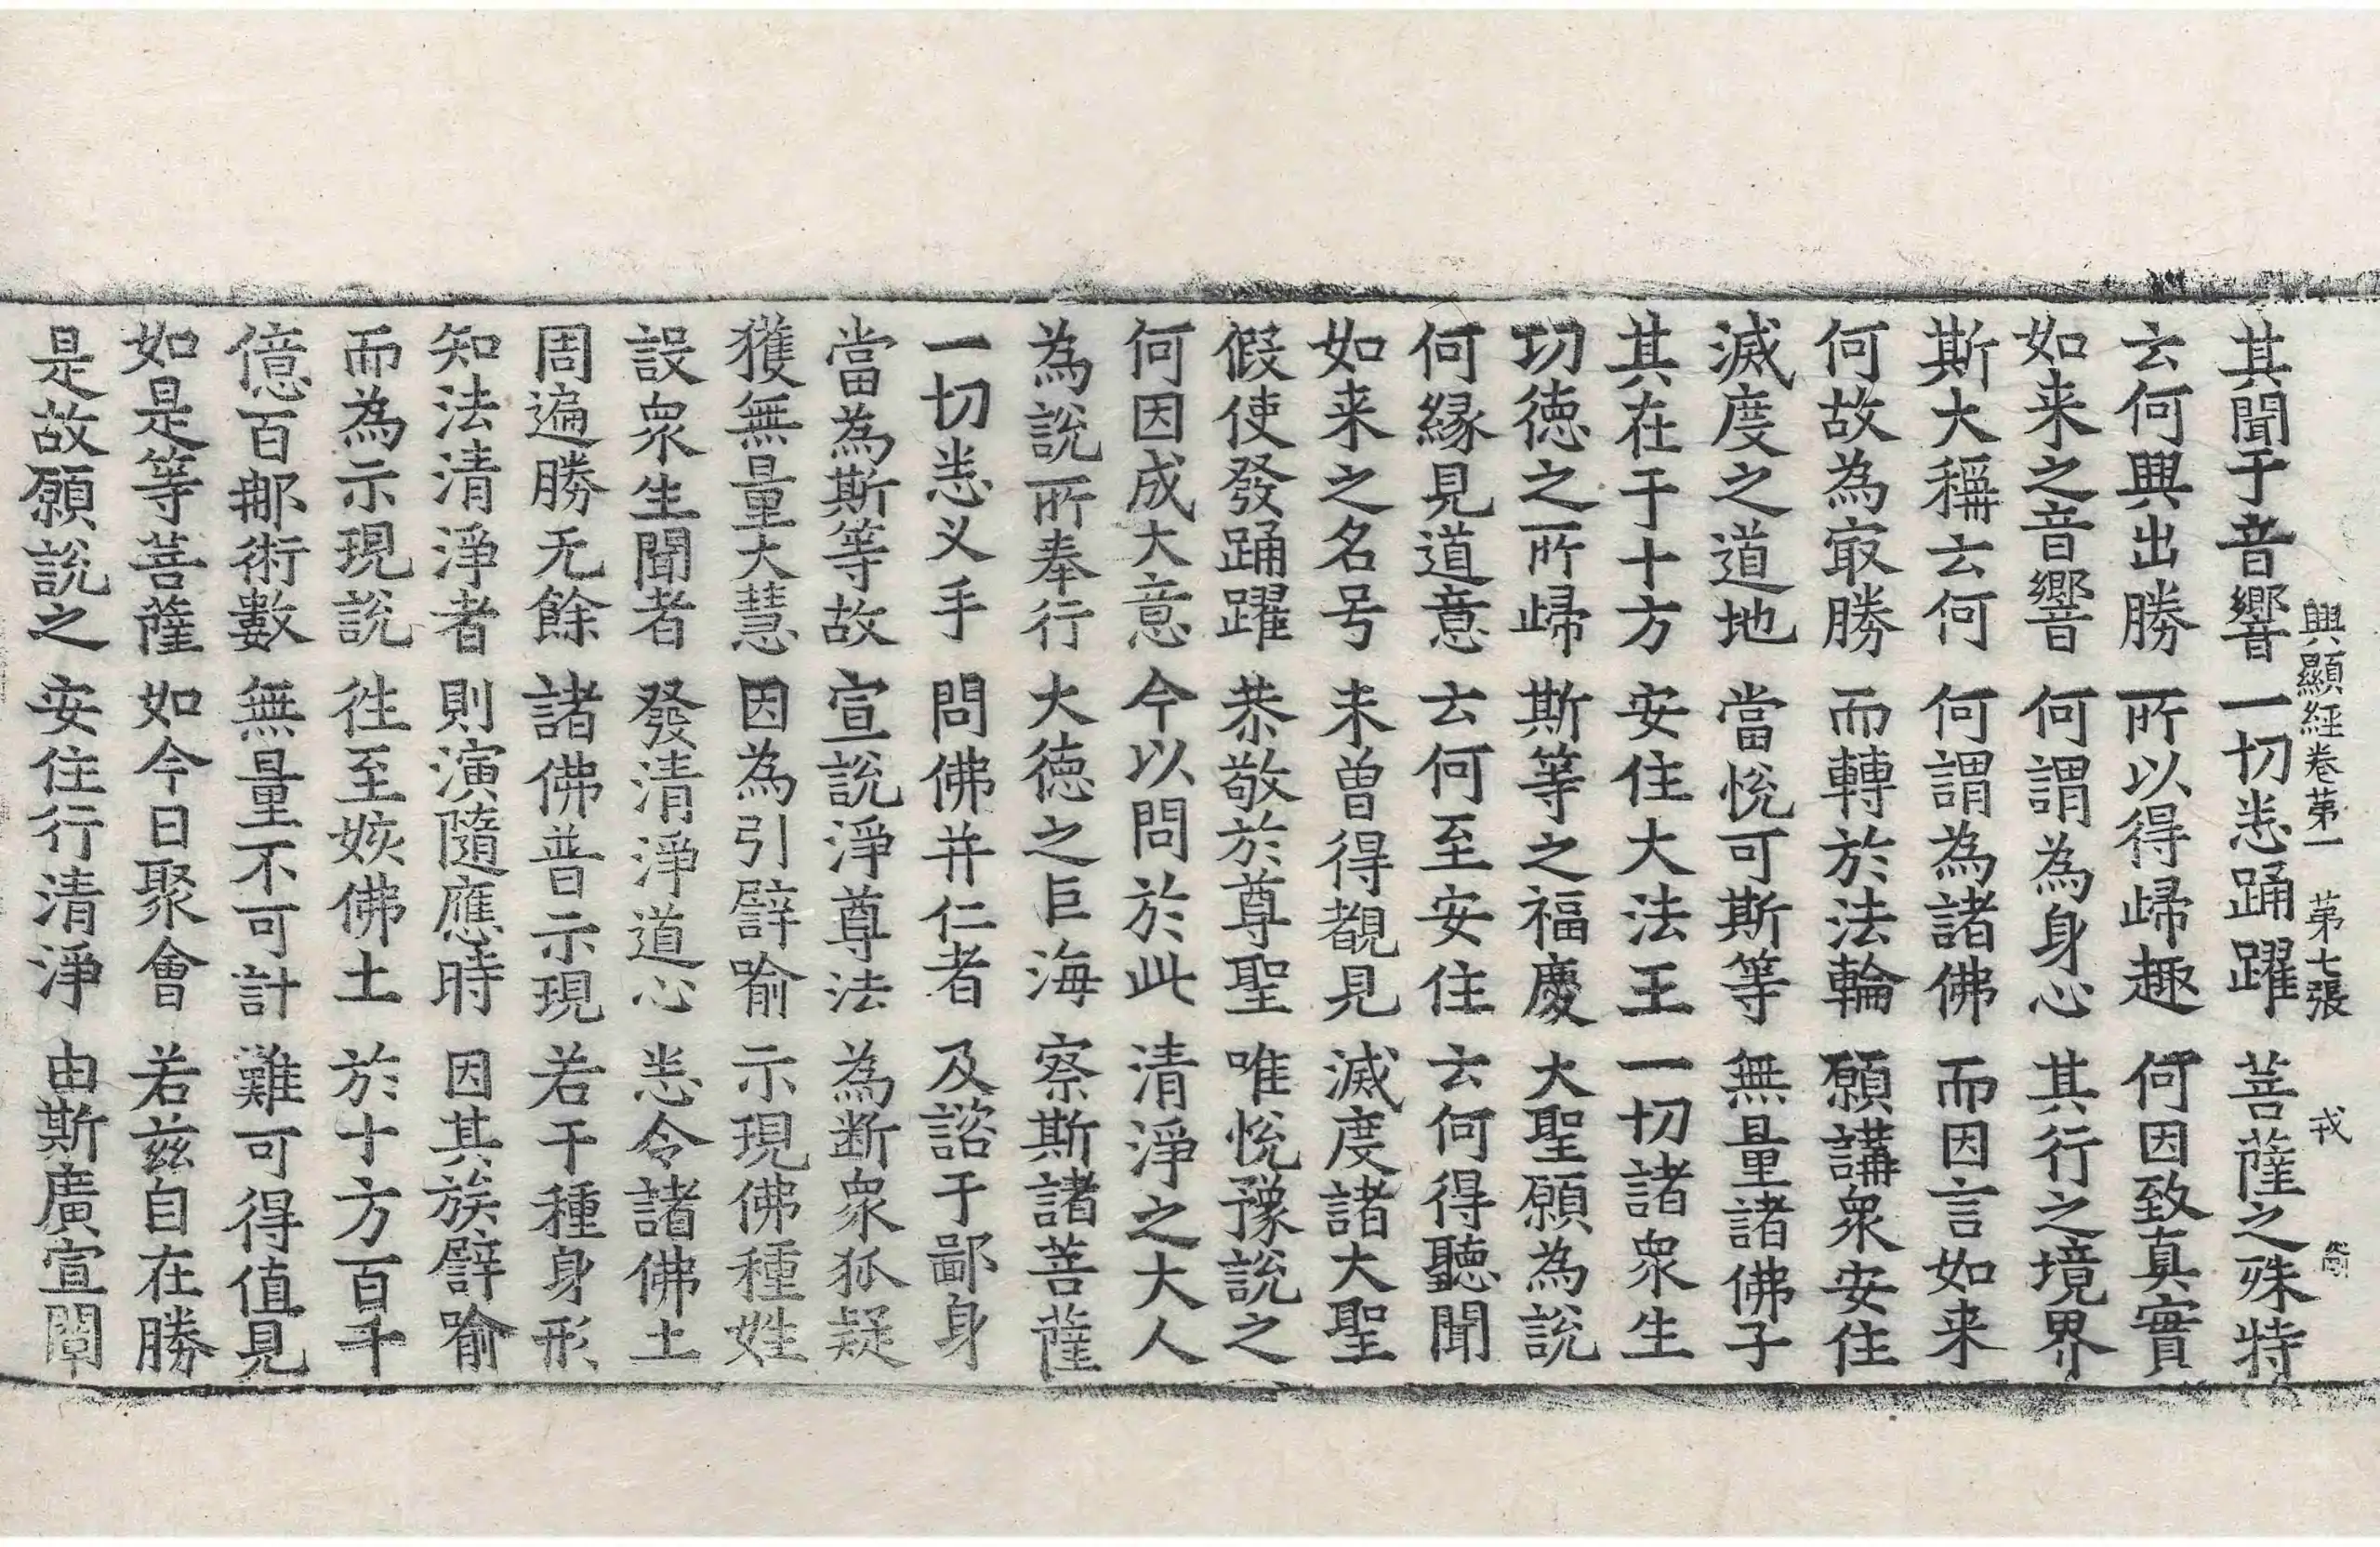 興顯經卷苐一　苐七張　戎
其聞于音響　一切悉踊躍　菩薩之殊特
云何興出勝　所以得歸趣　何因致真實
如来之音響　何謂為身心　其行之境界
斯大稱云何　何謂為諸佛　而因言如来
何故為㝡勝　而轉於法輪　願講衆安住
滅度之道地　當恱可斯等　無量諸佛子
其在于十方　安住大法王　一切諸衆生
切德之所歸　斯等之福慶　大聖願為說
何縁見道意　云何至安住　云何得聽聞
如来之名号　未曽得覩見　滅度諸大聖
假使發踊躍　恭敬於尊聖　唯恱豫說之
何因成大意　今以問於此　清淨之大人
為說所奉行　大德之巨海　察斯諸菩薩
一切悉义手　問佛并仁者　及諮于鄙身
當為斯等故　宣說淨尊法　為断衆狐疑
獲無量大慧　因為引譬喻　示現佛種姓
設衆生聞者　發清淨道心　悉令諸佛土
周遍勝无餘　諸佛普示現　若干種身形
知法清淨者　則演隨應時　因其族譬喻
而為示現說　徃至姟佛土　於十方百千
億百那術數　無量不可計　難可得值見
如是等菩薩　如今日聚會　若兹自在勝
是故願說之　安住行清淨　由斯廣宣闡